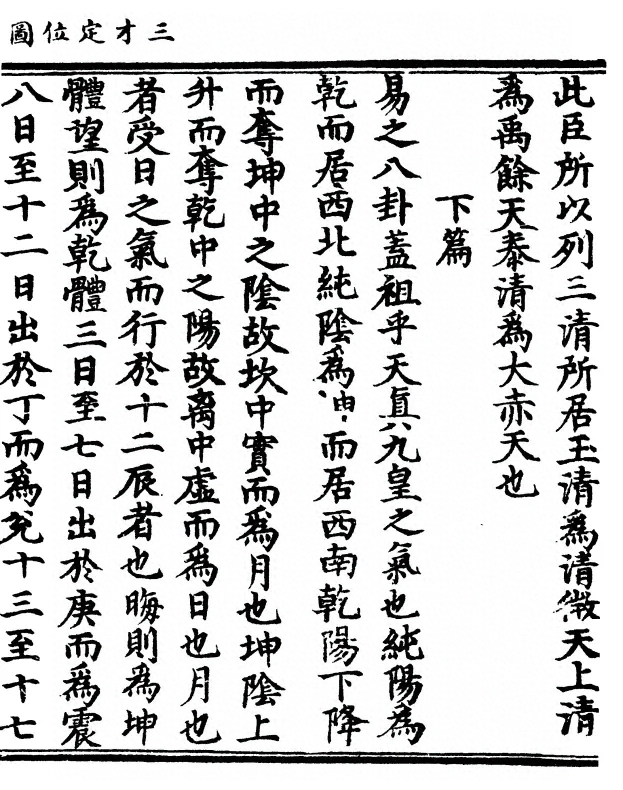 三才定位圖
此臣所以列三清所居玉清爲清微天上清
爲禹餘天泰清爲大赤天也
下篇
易之八卦蓋祖乎天眞九皇之氣也純陽爲
乾而居西北純陰爲坤而居西南乾陽下降
而奪坤中之陰故坎中實而爲月也坤陰上
升而奪乾中之陽故离中虛而爲日也月也
者受日之氣而行於十二辰者也晦則爲坤
體望則爲乾體三日至七日出於庚而爲震
八日至十二日出於丁而爲兊十三至十七